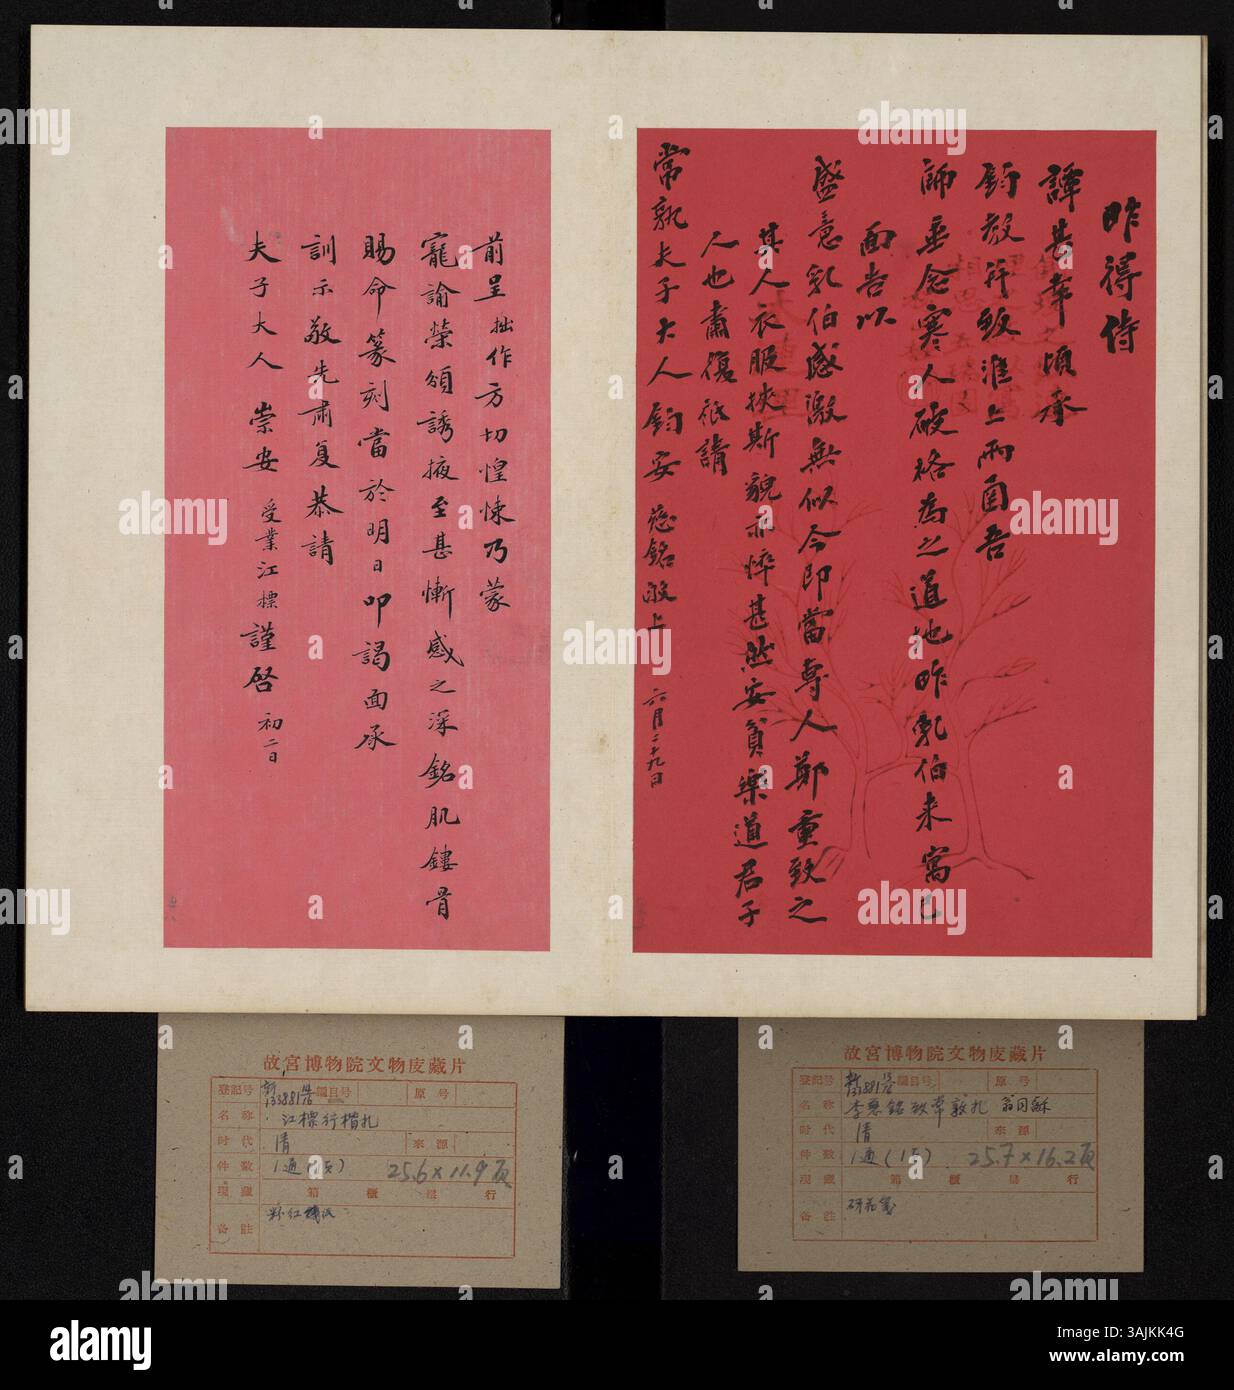 昨得侍
譚甚幸頃承
鈞教并致淮上兩函吾
師垂念寒人破格為之道地昨乳伯来寓已
面告以
盛意乳伯感激無似今即當專人鄭重致之
其人衣服挾斯貌亦悴甚然安貧樂道君子
人也肅復祇請
常熟夫子大人鈞安 慈銘敬上 六月二十九日
前呈拙作方切惶悚乃蒙
寵諭榮頒誘掖至甚慚感之深銘肌鏤骨
賜命篆刻當於明日叩謁面承
訓示敬先肅复恭請
夫子大人 崇安 受業江標謹啓 初二日
故宮博物院文物庋藏片
登記号 新133881 編目号 原号
名称 江標行楷札
时代 清 來源
件数 1通(1頁) 25.6×11.9頁
現藏 箱 櫃 层 行
备註
故宮博物院文物庋藏片
登記号 新133881 編目号 原号
名称 李慈銘致常熟札 翁同龢
时代 清 來源
件数 1通(1頁) 25.7×16.2頁
現藏 箱 櫃 层 行
备註 砑花箋
alamy
Image ID: 3AJKK4G
www.alamy.com